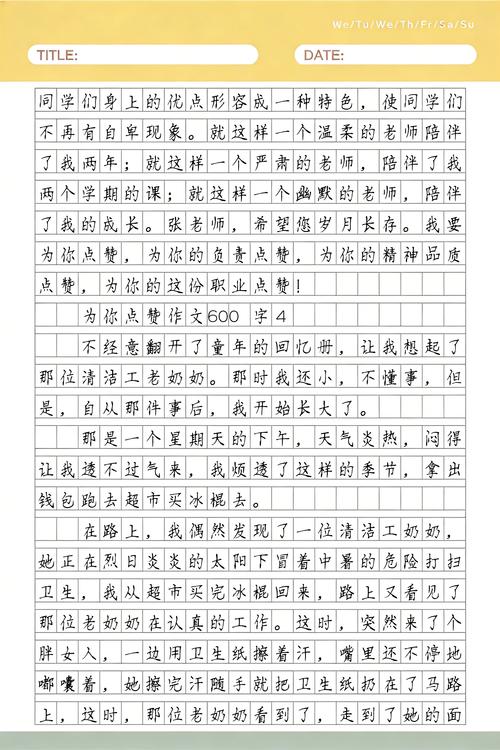 We/Tu/We/Th/Fr/Sa/Su
TITLE: DATE:
同学们身上的优点形容成一种特色，使同学们
不再有自卑现象。就这样一个温柔的老师陪伴
了我两年；就这样一个严肃的老师，陪伴了我
两个学期的课；就这样一个幽默的老师，陪伴
了我的成长。张老师，希望您岁月长存。我要
为你点赞，为你的负责点赞，为你的精神品质
点赞，为你的这份职业点赞！
为你点赞作文600 字4
不经意翻开了童年的回忆册，让我想起了
那位清洁工老奶奶。那时我还小，不懂事，但
是，自从那件事后，我开始长大了。
那是一个星期天的下午，天气炎热，闷得
让我透不过气来，我烦透了这样的季节，拿出
钱包跑去超市买冰棍去。
在路上，我偶然发现了一位清洁工奶奶，
她正在烈日炎炎的太阳下冒着中暑的危险打扫
卫生，我从超市买完冰棍回来，路上又看见了
那位老奶奶在认真的工作。这时，突然来了个
胖女人，一边用卫生纸擦着汗，嘴里还不停地
嘟囔着，她擦完汗随手就把卫生纸扔在了马路
上，这时，那位老奶奶看到了，走到了她的面